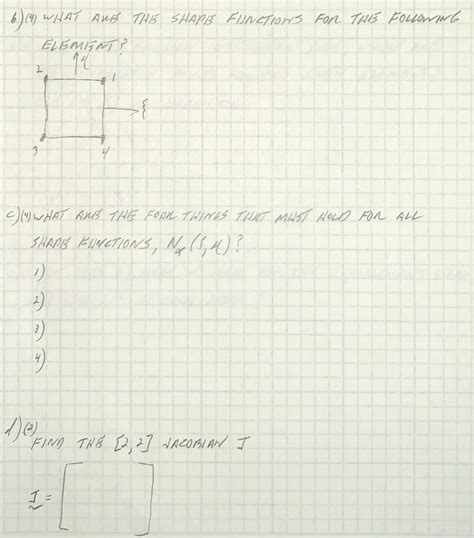 b)(4) WHAT ARE THE SHAPE FUNCTIONS FOR THE FOLLOWING
ELEMENT?
η
2 1
ξ
3 4
c)(4) WHAT ARE THE FOUR THINGS THAT MUST HOLD FOR ALL
SHAPE FUNCTIONS, Nα(ξ,η)?
1)
2)
3)
4)
d)(2)
FIND THE [2,2] JACOBIAN J
J =